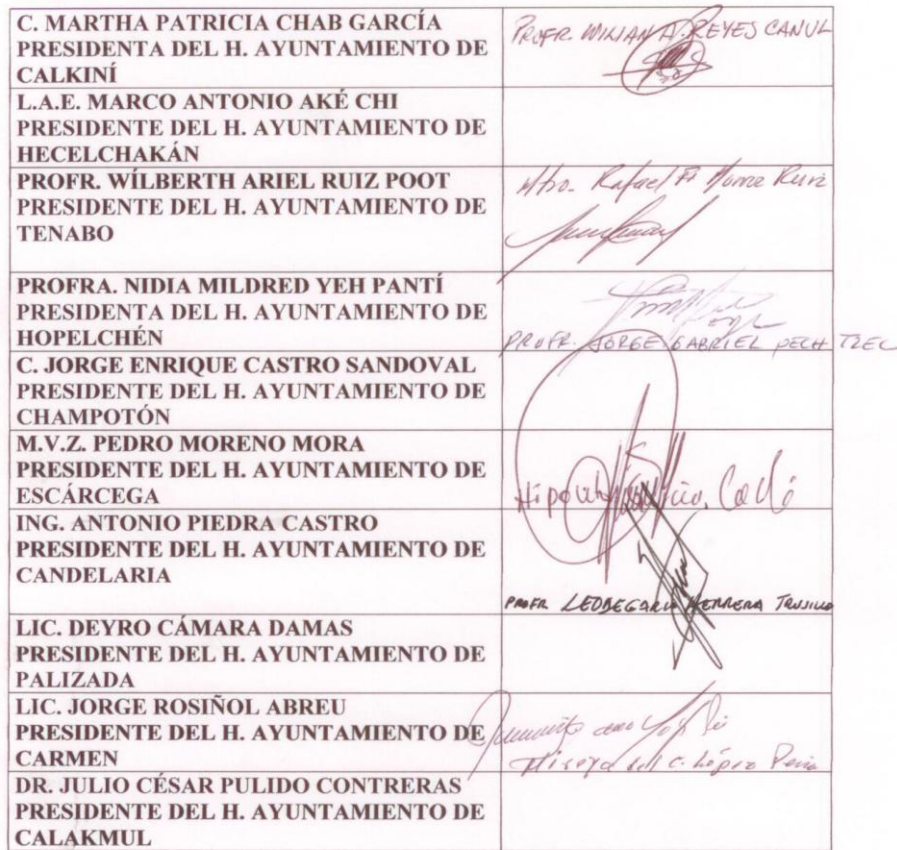 C. MARTHA PATRICIA CHAB GARCÍA
PRESIDENTA DEL H. AYUNTAMIENTO DE
CALKINÍ
PROFR. WILIAN A. REYES CANUL
L.A.E. MARCO ANTONIO AKÉ CHI
PRESIDENTE DEL H. AYUNTAMIENTO DE
HECELCHAKÁN
PROFR. WÍLBERTH ARIEL RUIZ POOT
PRESIDENTE DEL H. AYUNTAMIENTO DE
TENABO
Mtro. Rafael Ruiz
PROFRA. NIDIA MILDRED YEH PANTÍ
PRESIDENTA DEL H. AYUNTAMIENTO DE
HOPELCHÉN
PROFR. JORGE GABRIEL PECH TZEC
C. JORGE ENRIQUE CASTRO SANDOVAL
PRESIDENTE DEL H. AYUNTAMIENTO DE
CHAMPOTÓN
M.V.Z. PEDRO MORENO MORA
PRESIDENTE DEL H. AYUNTAMIENTO DE
ESCÁRCEGA
ING. ANTONIO PIEDRA CASTRO
PRESIDENTE DEL H. AYUNTAMIENTO DE
CANDELARIA
PROFR LEOBEGARIO HERRERA TRUJILLO
LIC. DEYRO CÁMARA DAMAS
PRESIDENTE DEL H. AYUNTAMIENTO DE
PALIZADA
LIC. JORGE ROSIÑOL ABREU
PRESIDENTE DEL H. AYUNTAMIENTO DE
CARMEN
del C. López
DR. JULIO CÉSAR PULIDO CONTRERAS
PRESIDENTE DEL H. AYUNTAMIENTO DE
CALAKMUL